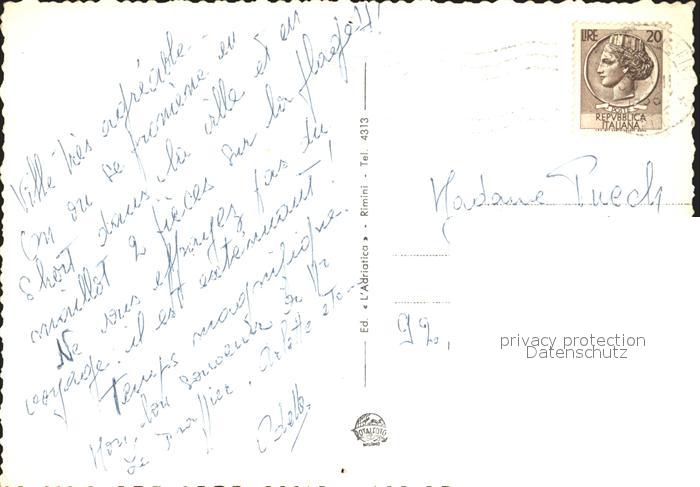 Ville très agréable.
On ou se promène en
short dans la ville et en
maillot 2 pièces sur la plage!!
Ne vous effrayez pas du
voyage. il est exténuant!
Temps magnifique.
Mon bon souvenir à Mr
Arlette et
Odette.
Ed. « L'Adriatica » - Rimini - Tel. 4313
TOTALFOTO
MILANO
LIRE 20
POSTE
REPVBBLICA
ITALIANA
Madame Puech
92,
privacy protection
Datenschutz